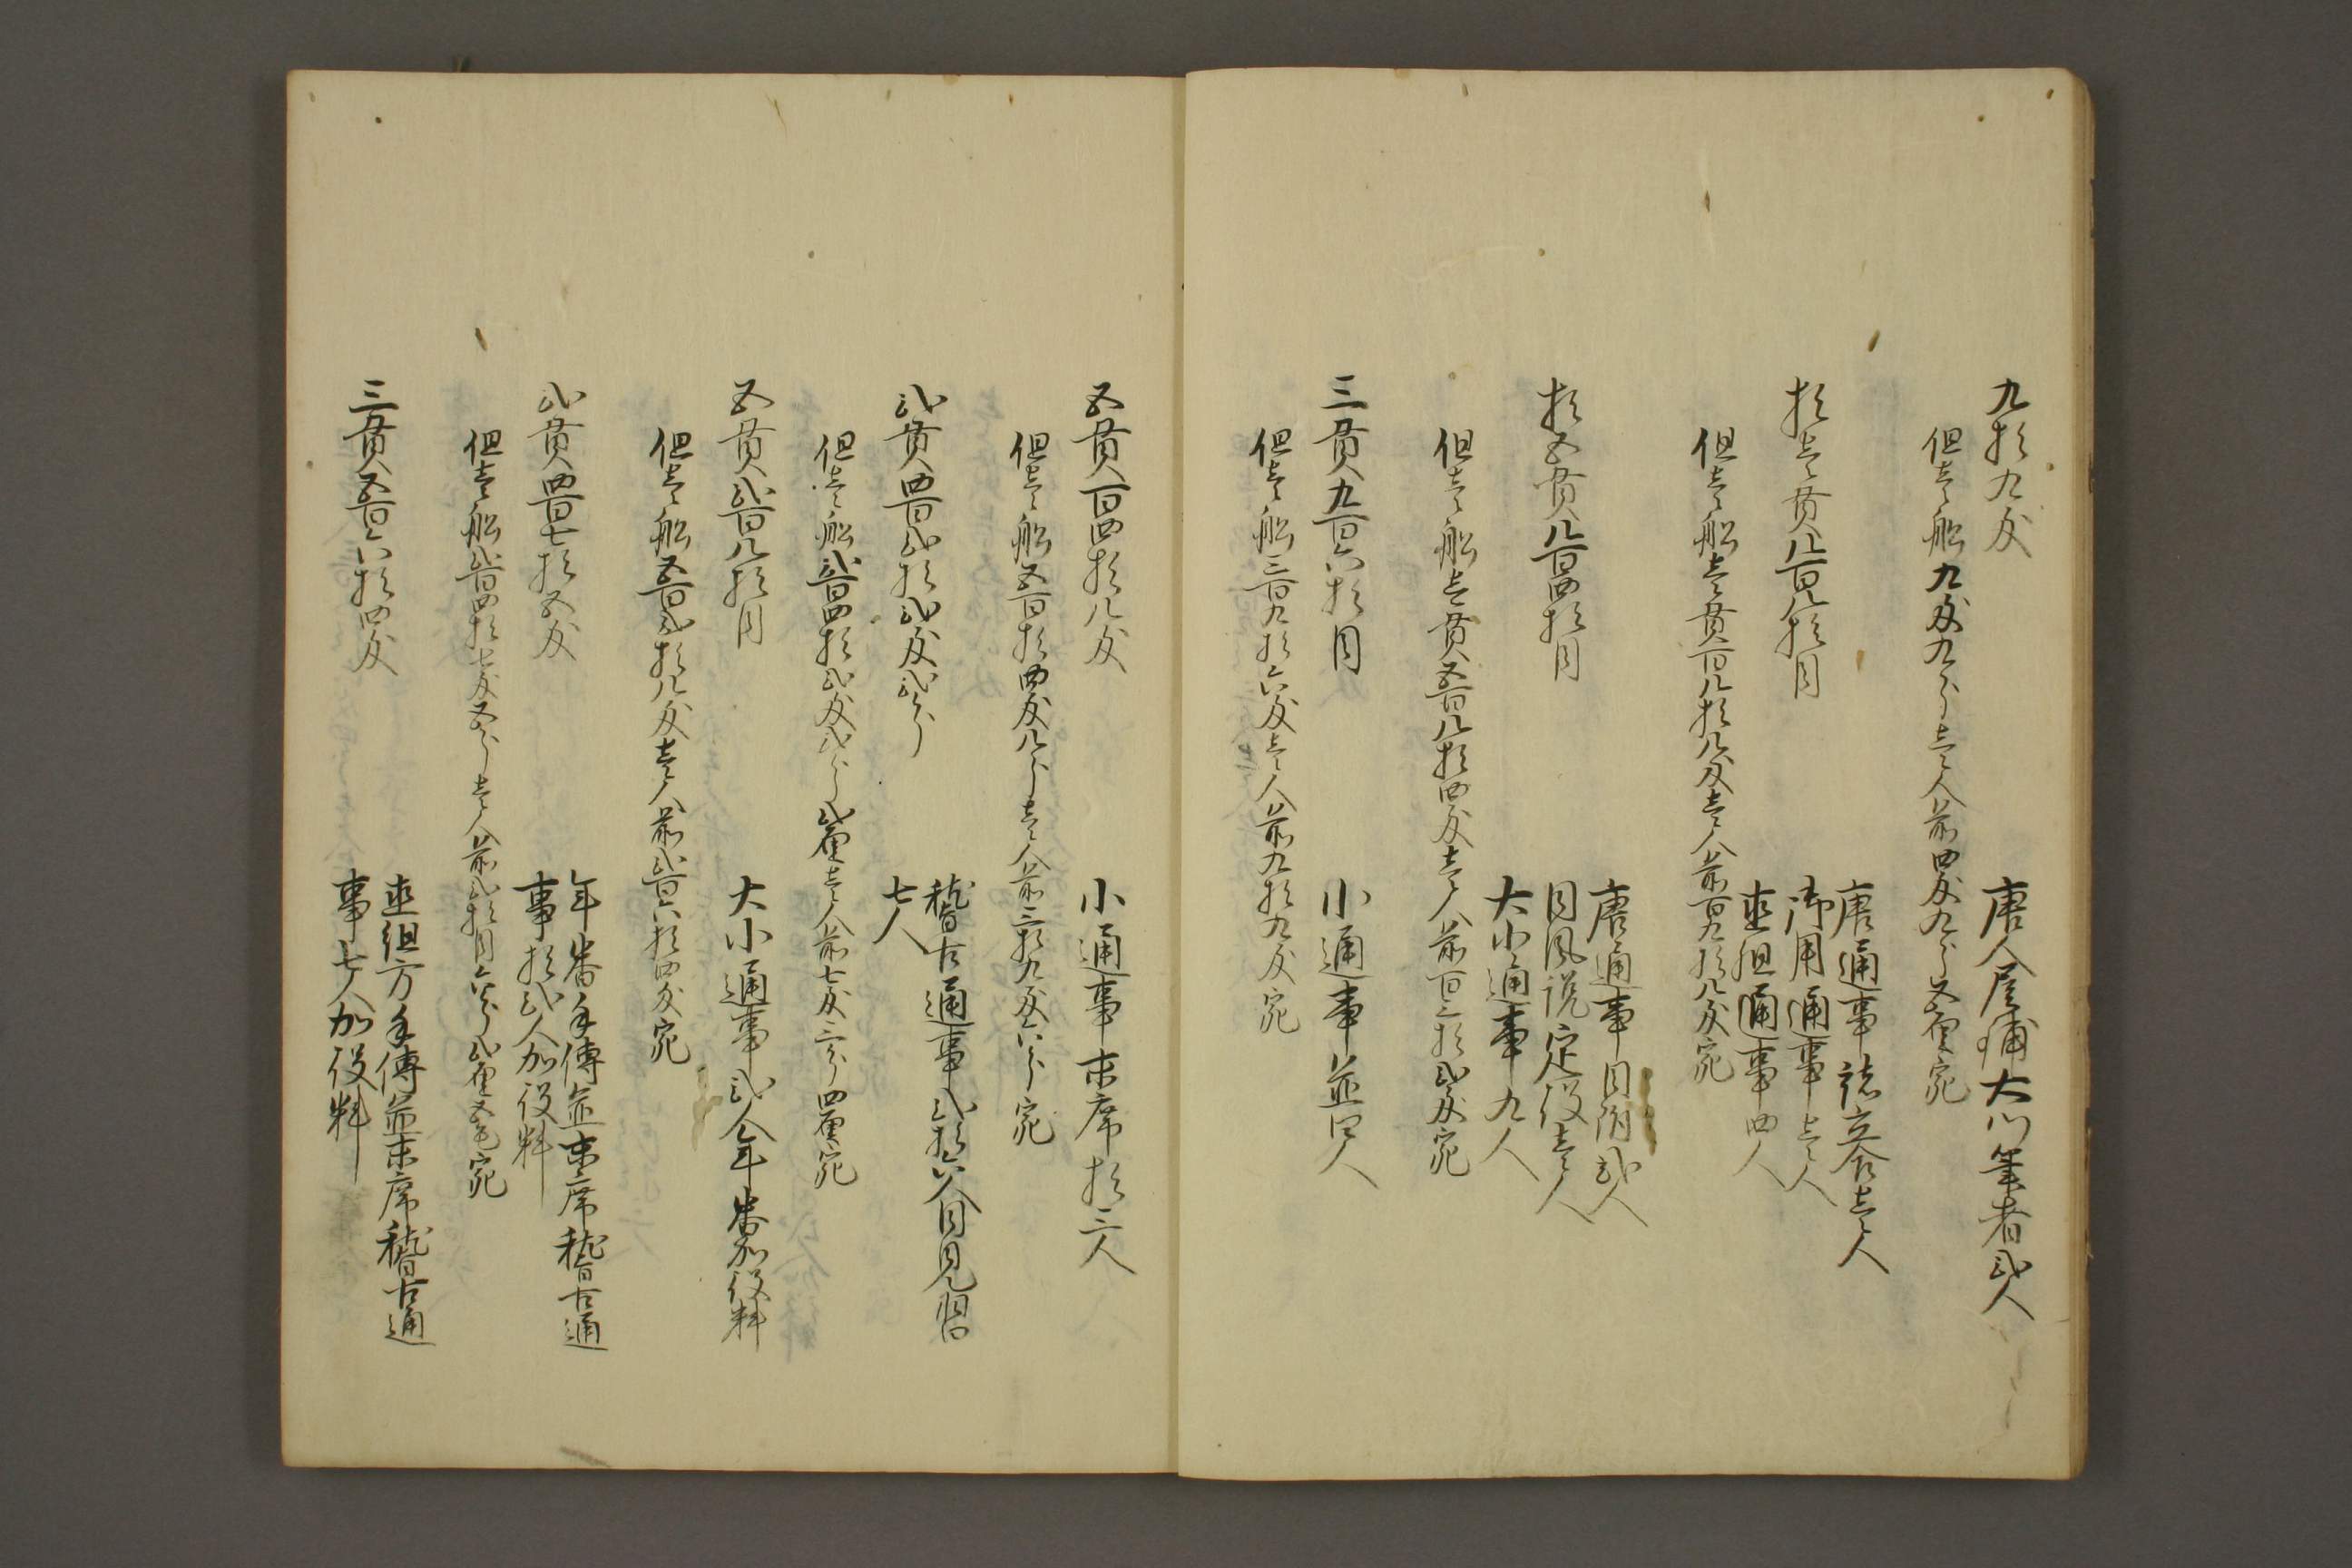 九拾九匁 唐人屋鋪大門筆者弐人
但壱船九匁九分壱人前四匁九分五厘宛
唐通事諸立合壱人
拾壱貫八百八拾目 御用通事壱人
直組通事四人
但壱船壱貫百八拾八匁壱人前百九拾八匁宛
唐通事目附弐人
拾五貫八百四拾目 同風説定役壱人
大小通事九人
但壱船壱貫五百八拾四匁壱人前百三拾弐匁宛
三貫九百六拾目 小通事並四人
但壱船三百九拾六匁壱人前九拾九匁宛
五貫百四拾八匁 小通事末席拾三人
但壱船五百拾四匁八分壱人前三拾九匁六分宛
弐貫四百弐拾弐匁弐分 稽古通事弐拾六人同見習
七人
但壱船弐百四拾弐匁弐分弐厘壱人前七匁三分四厘宛
五貫弐百八拾目 大小通事弐人年番加役料
但壱船五百弐拾八匁壱人前弐百六拾四匁宛
弐貫四百七拾五匁 年番手傳並末席稽古通
事拾弐人加役料
但壱船弐百四拾七匁五分壱人前弐拾目六分弐厘五毛宛
三貫五百六拾四匁 直組方手傳並末席稽古通
事七人加役料